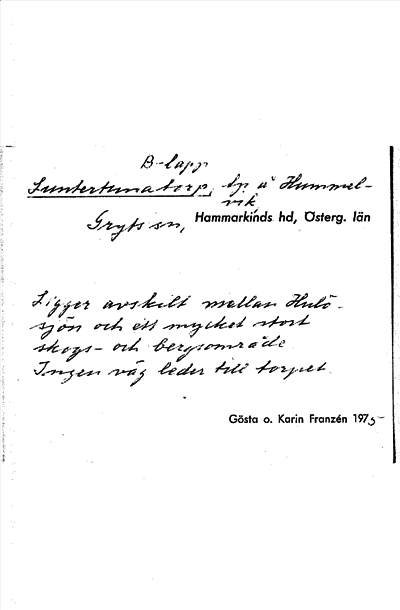 B-lapp
Suntertunatorp, tp. u Hummel-
vik,
Gryts sn, Hammarkinds hd, Österg. län
Ligger avskilt mellan Hulö-
sjön och ett mycket stort
skogs- och bergsområde
Ingen väg leder till torpet.
Gösta o. Karin Franzén 1975